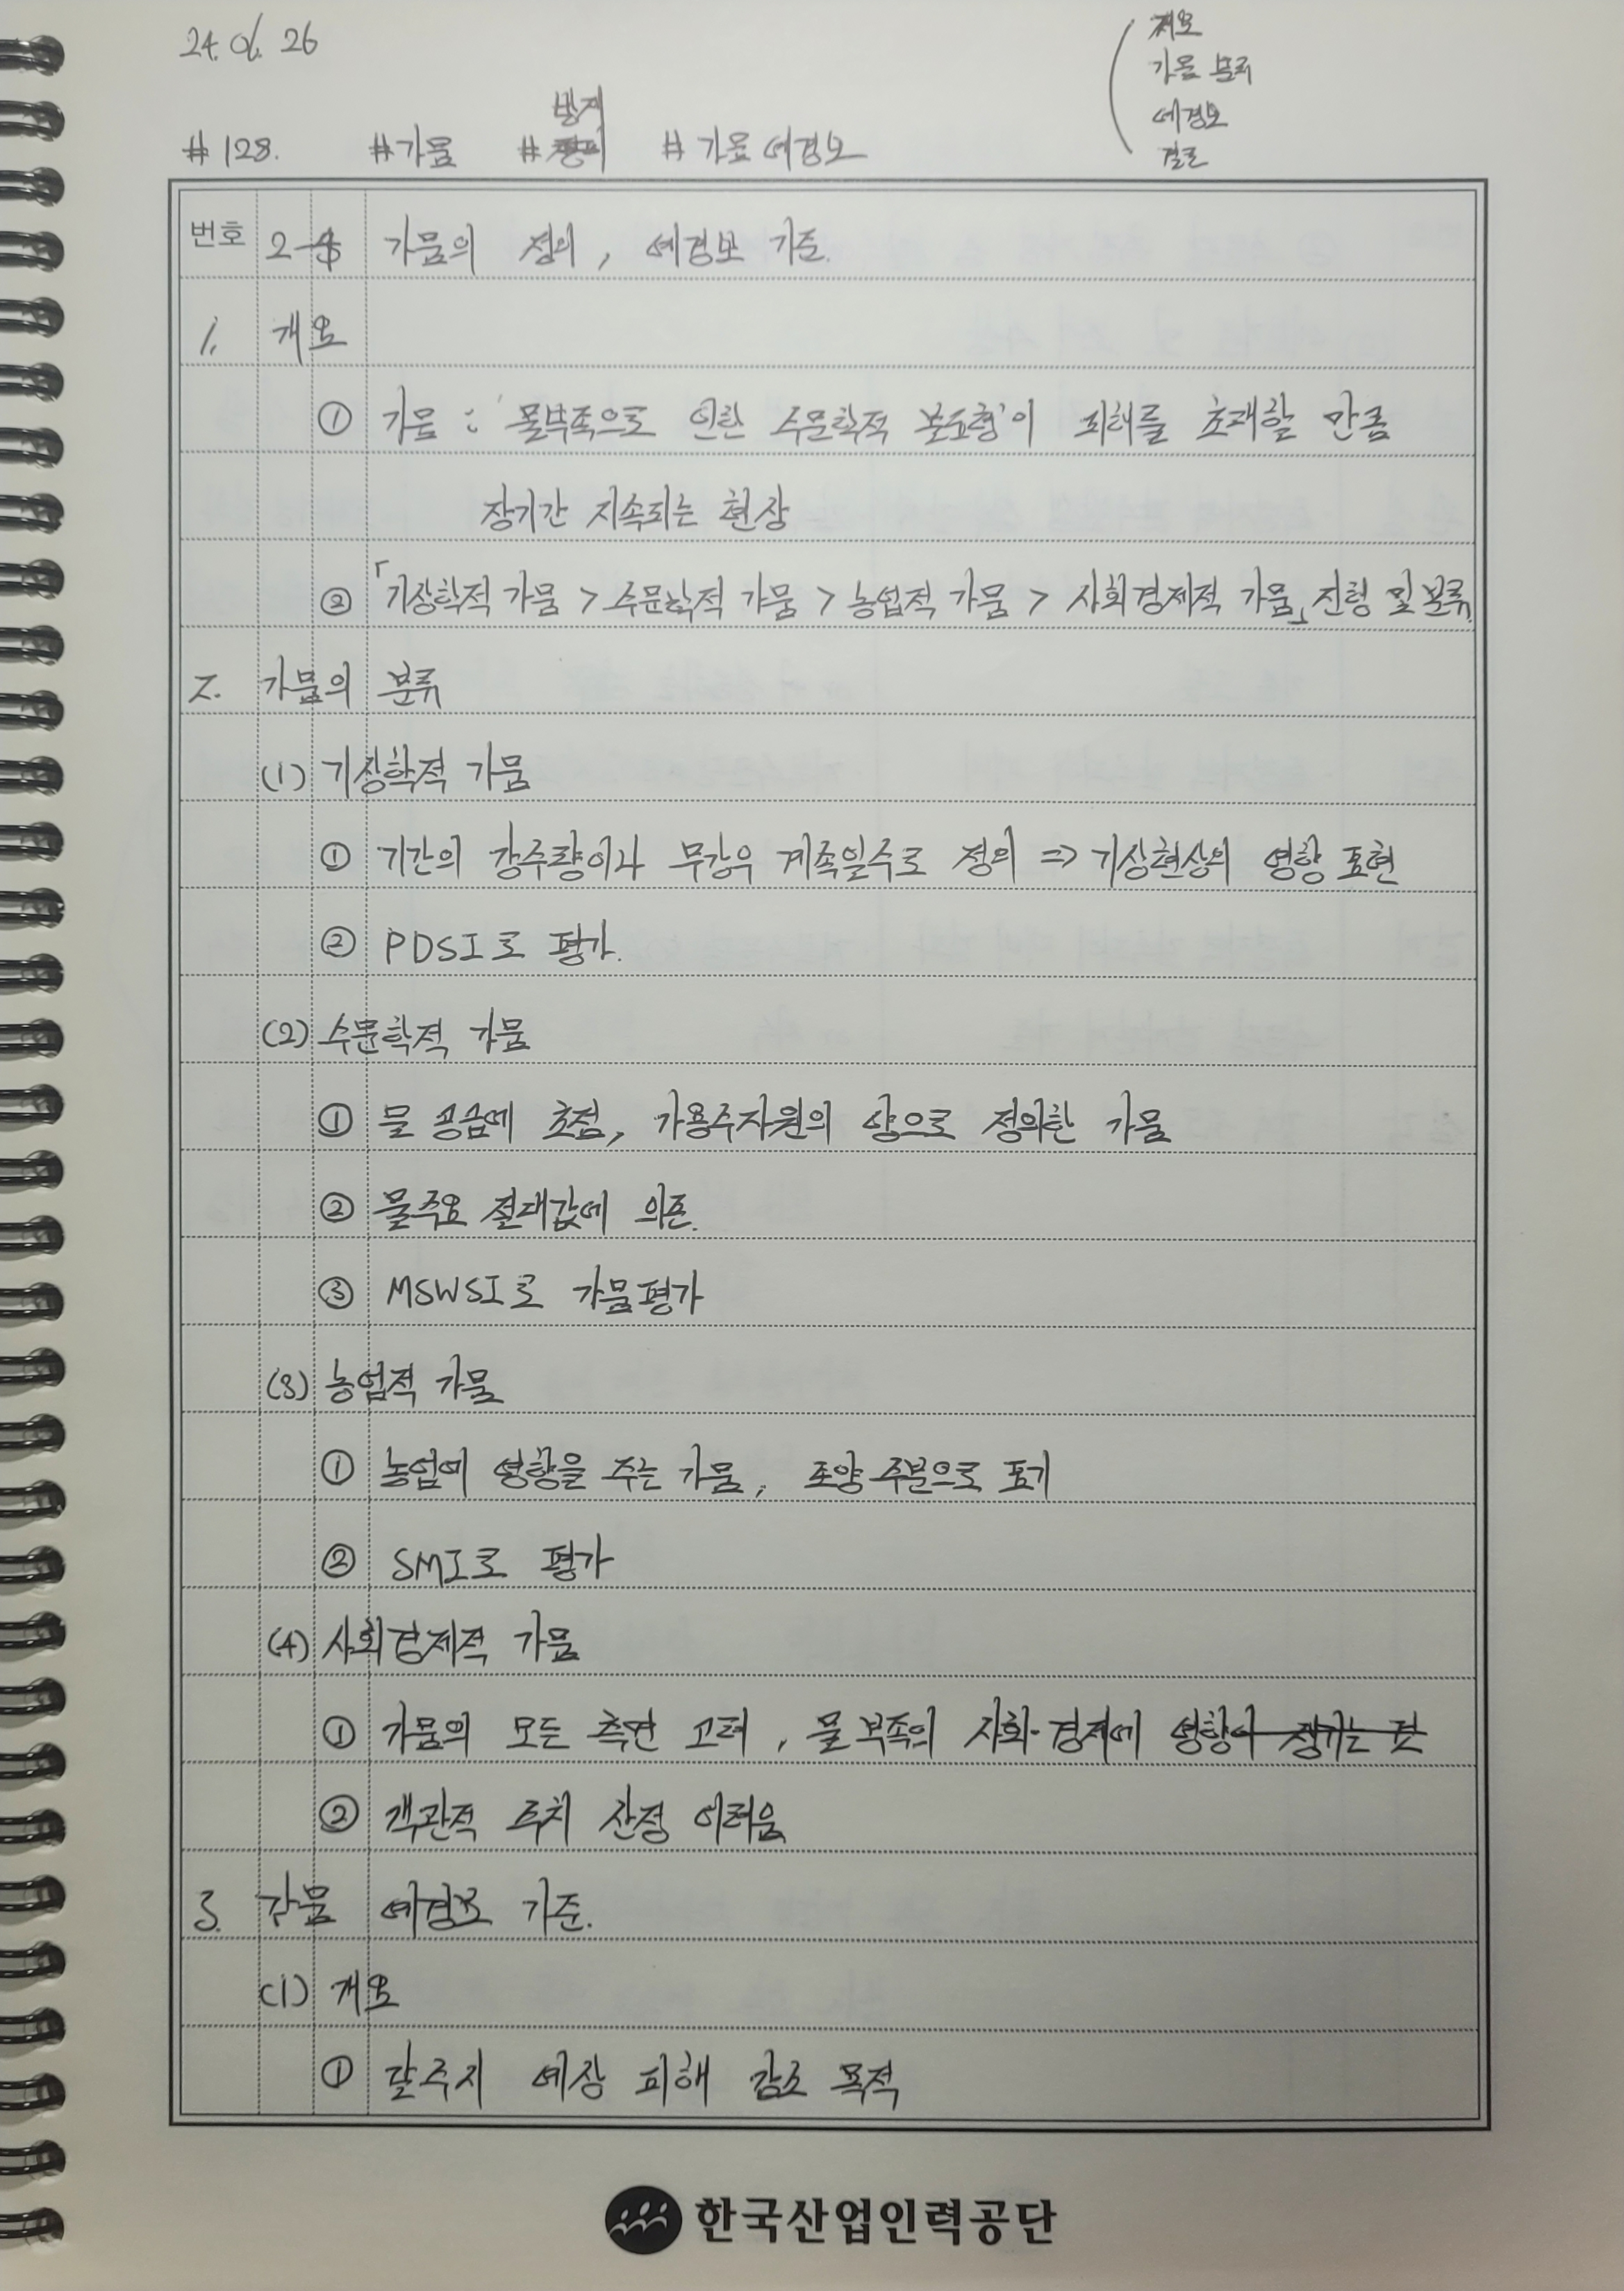 24. 01. 26
개요
가뭄 분류
예경보
결론
방재
#128. #가뭄 # #가뭄 예경보
번호 2-4 가뭄의 정의, 예경보 기준.
1. 개요
① 가뭄 : '물부족으로 인한 수문학적 불균형'이 피해를 초래할 만큼
장기간 지속되는 현상
② 「기상학적 가뭄 > 수문학적 가뭄 > 농업적 가뭄 > 사회경제적 가뭄」 진행 및 분류
2. 가뭄의 분류
(1) 기상학적 가뭄
① 기간의 강수량이나 무강우 계속일수로 정의 => 기상현상의 영향 표현
② PDSI로 평가.
(2) 수문학적 가뭄
① 물 공급에 초점, 가용수자원의 양으로 정의한 가뭄
② 물수요 절대값에 의존.
③ MSWSI로 가뭄평가
(3) 농업적 가뭄
① 농업에 영향을 주는 가뭄, 토양 수분으로 표기
② SMI로 평가
(4) 사회경제적 가뭄
① 가뭄의 모든 측면 고려, 물 부족의 사회·경제에 영향이 생기는 것
② 객관적 수치 산정 어려움
3. 가뭄 예경보 기준.
(1) 개요
① 갈수시 예상 피해 감소 목적
한국산업인력공단